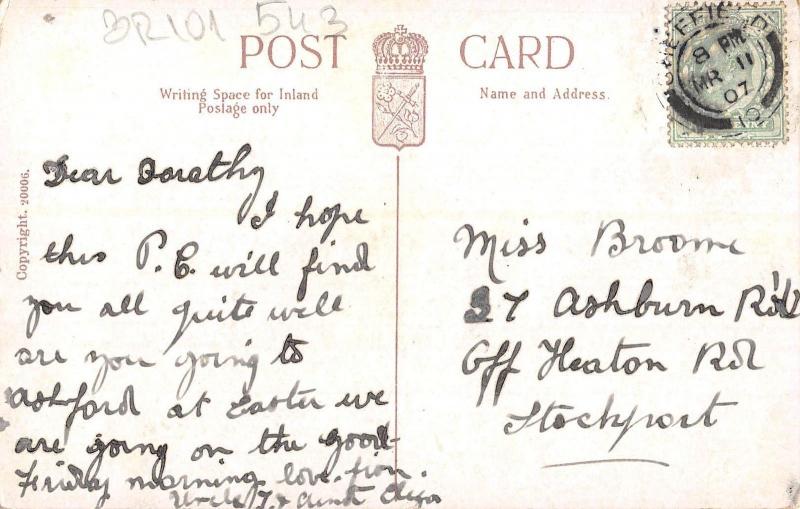 BR101 543
POST CARD
Writing Space for Inland
Postage only
Name and Address.
Copyright. 20006.
SHEFFIELD
8 PM
MR 11
07
12
Dear Dorathy
I hope
this P.C. will find
you all quite well
are you going to
Ashford at Easter we
are going on the good-
Friday morning love from.
Uncle J. & Aunt
Miss Broome
27 Ashburn Rd
Off Heaton Rd
Stockport